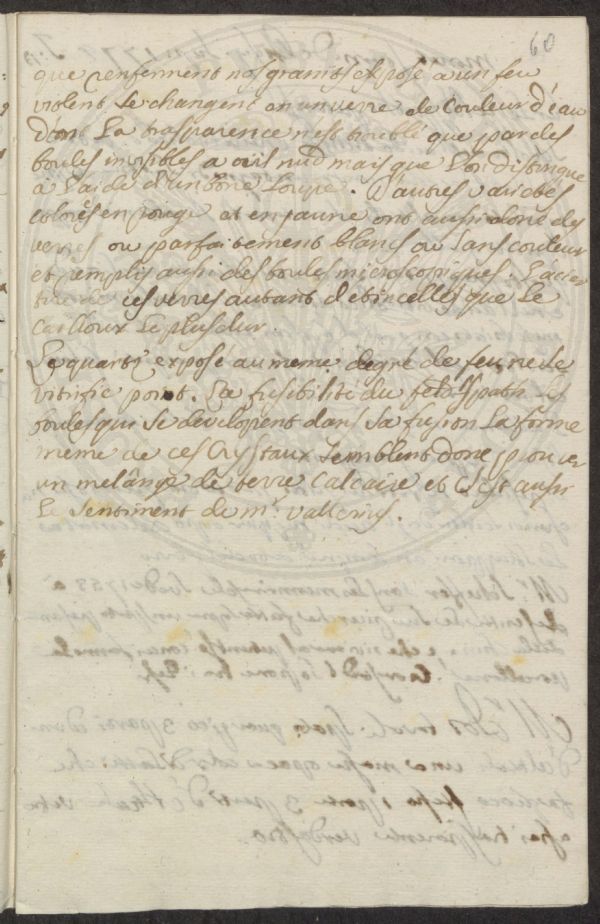 60
que renferment nos granits exposé a un feu
violent se changent en un verre de couleur d'eau
dont La trasparence n'est troublé que par des
boules invisibles a œil nud mais que L'on distingue
à L'aide d'un bone Loupe. D'autres varietés
colorés en rouge et en jaune ont aussi doné des
verres ou parfaitement blancs ou sans couleur
et remplis aussi des boules microscopiques. L'acier
tire de ces verres autant d'etincelles que Le
Cailloux Le plus dur.
Le quartz exposé au meme degré de feu ne se
vitrifie point. La fusibilité du feld Spath Les
boules qui se developent dans sa fusion La forme
meme de ces Crystaux semblent donc prouver
un melânge de terre Calcaire et C'est aussi
Le Sentiment de mr. Vallerius.